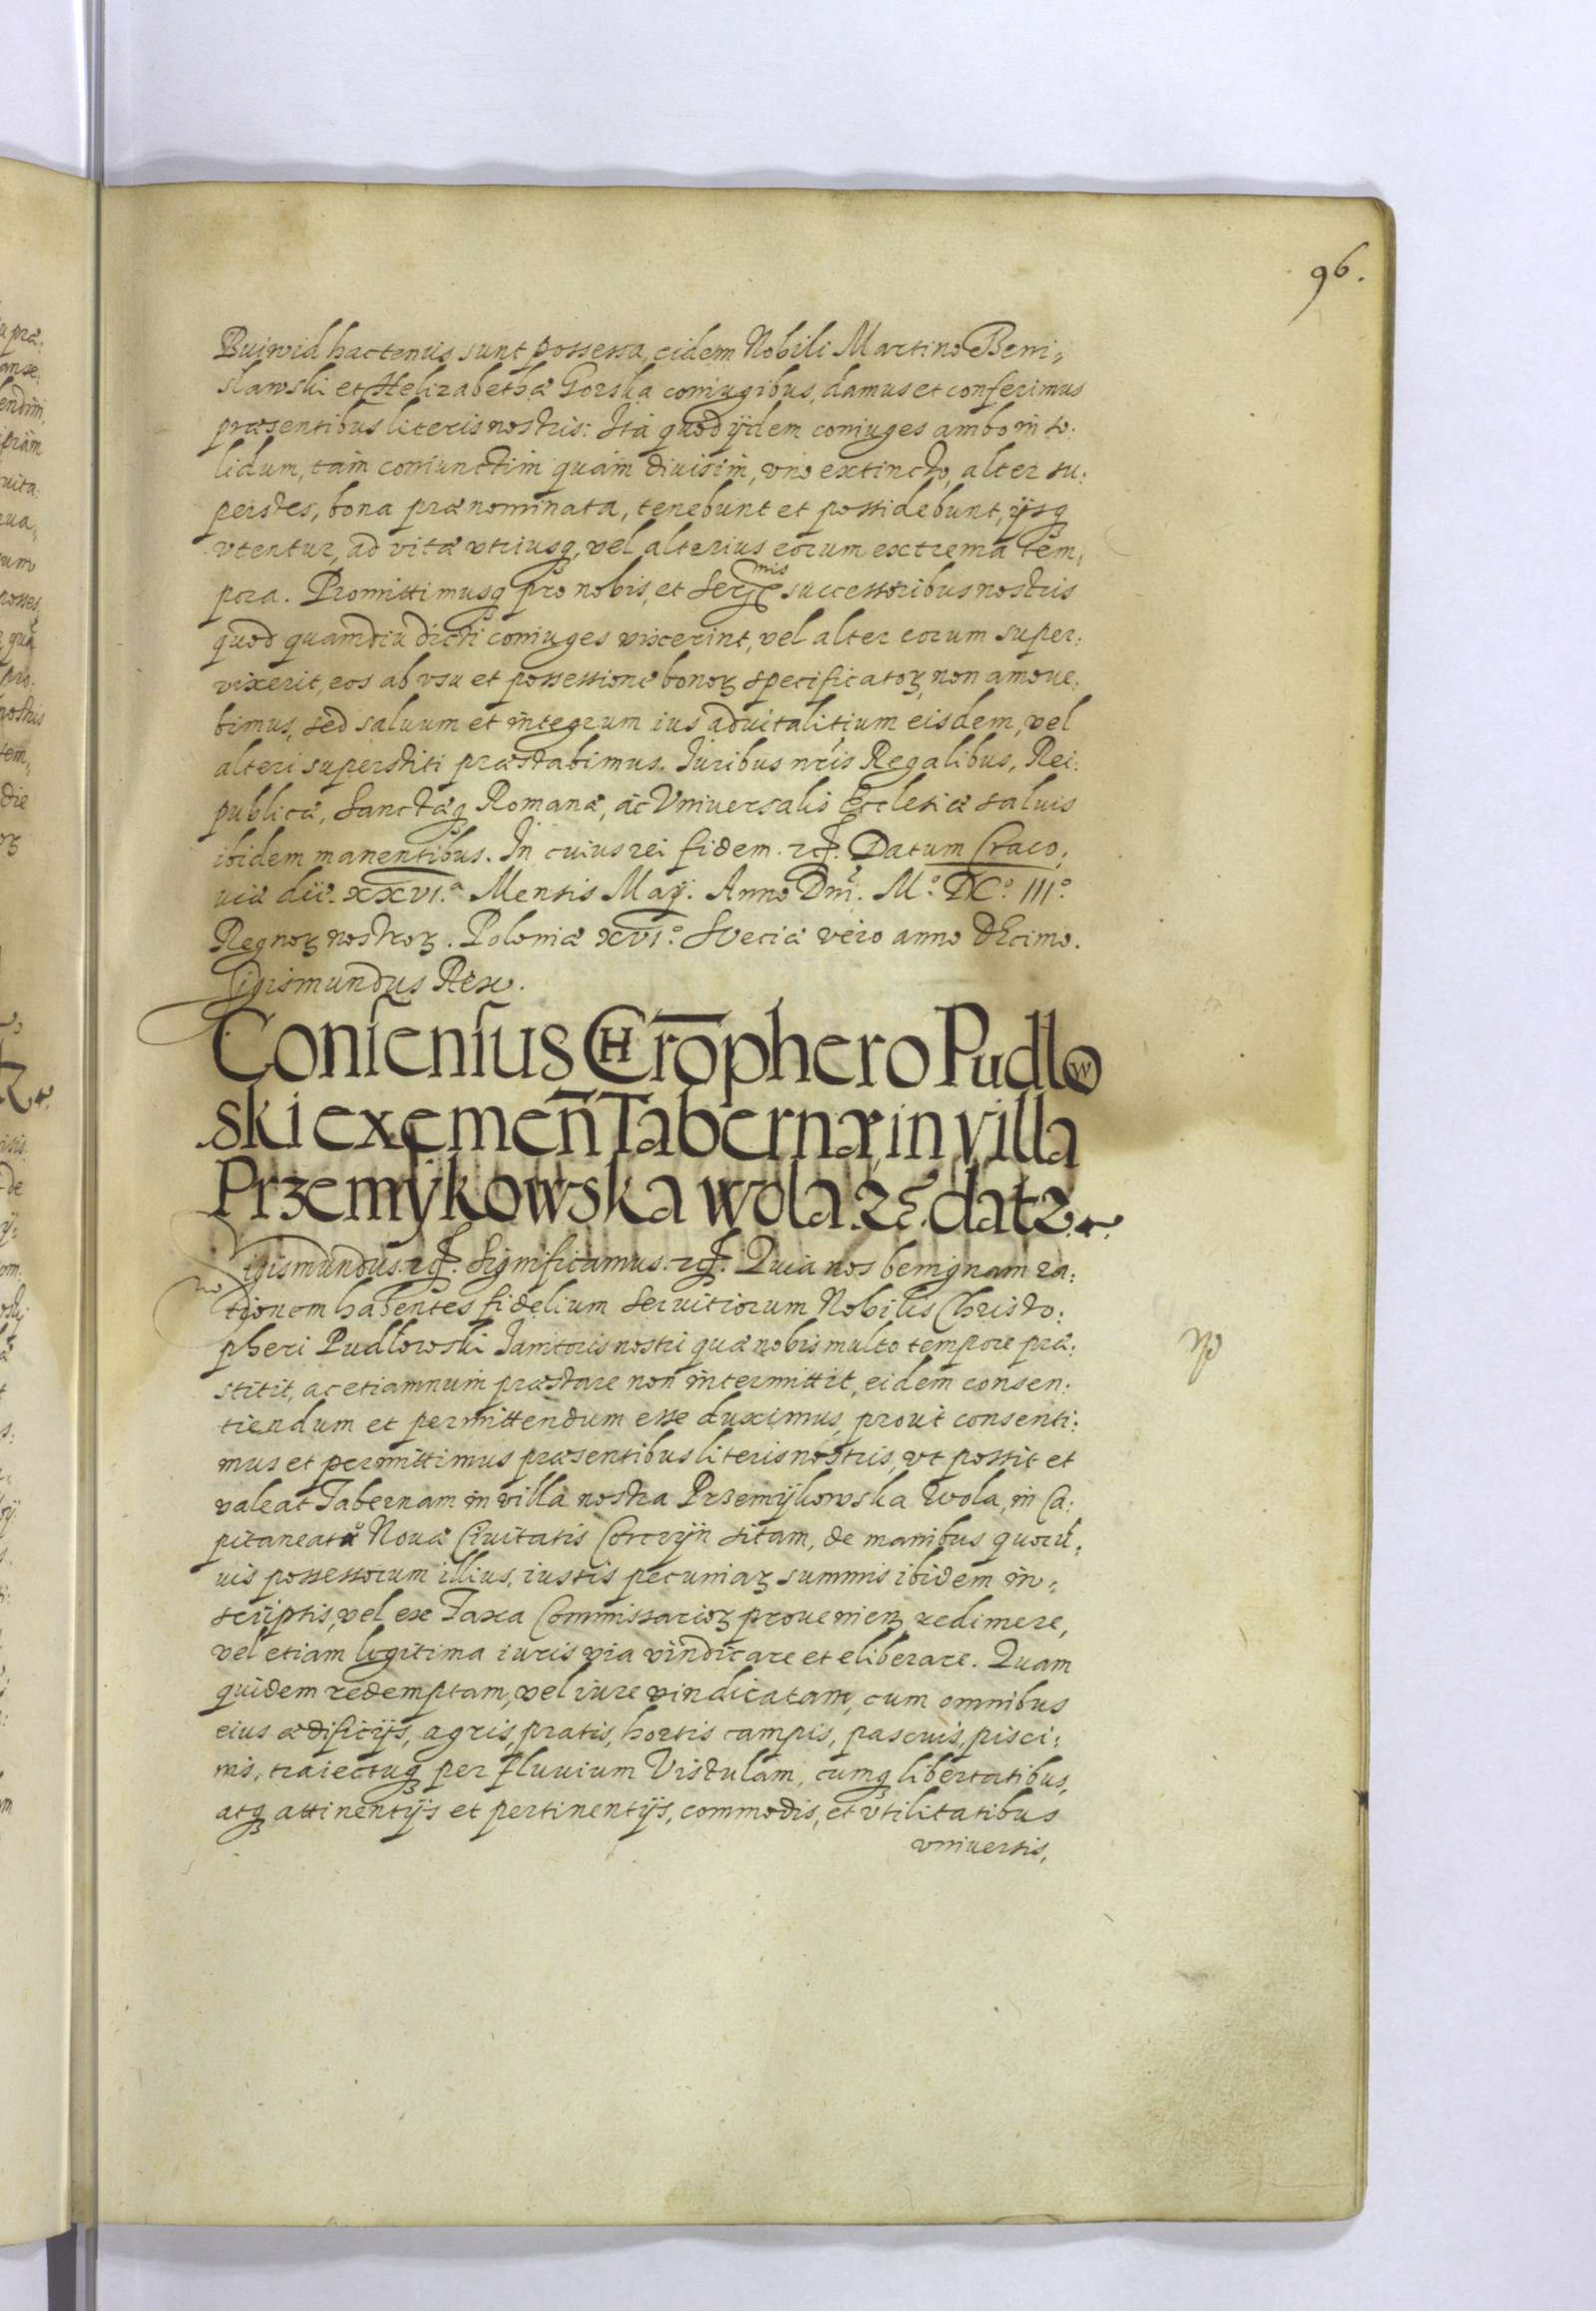 96.
Buiwid hactenus sunt possessa, eidem Nobili Martino Beni„
slawski et Helizabethæ Gorska coniugibus, damus et conferimus
præsentibus literis nostris: Ita quod ijdem coniuges ambo in so:
lidum, tam coniunctim quam diuisim, vno extincto, alter su:
perstes, bona prænominata, tenebunt et possidebunt, ijsq;
vtentur, ad vitæ vtriusq; vel alterius eorum extrema tem„
pora. Promittimusq; pro nobis, et Ser^mis successoribus nostris
quod quamdiu dicti coniuges vixerint, vel alter eorum super:
vixerit, eos ab vsu et possessione bonoꝝ specificatoꝝ, non amoue:
bimus, sed saluum et integrum ius aduitalitium eisdem, vel
alteri superstiti præstabimus. Iuribus nr̃is Regalibus, Rei:
publicæ, Sanctæq; Romanæ, ac Vniuersalis Ecclesiæ saluis
ibidem manentibus. In cuius rei fidem. etc. Datum Craco„
uiæ die. XXVI.ª Mensis Maij. Anno Dni̅. M.º DC.º III.º
Regnoꝝ nostroꝝ. Poloniæ XVI.º Sveciæ vero anno dEcimo.
Sigismundus Rex.
Conſenſus CHr̅ophero Pudlow
ski exemen̅ Tabernæ, in villa
Przemÿkowska wola. etc. datꝛ.
Sigismundus. etc. Significamus. etc. Quia nos benignam ra:
tionem habentes fidelium seruitiorum Nobilis Christo:
pheri Pudlowski Ianitoris nostri quæ nobis multo tempore præ:
stitit, ac etiamnum præstare non intermittit, eidem consen:
tiendum et permittendum esse duximus, prout consenti:
mus et permittimus præsentibus literis nostris, vt possit et
valeat Tabernam in villa nostra Przemÿkowska Wola, in Ca:
pitaneatu Nouæ Ciuitatis Corczyn sitam, de manibus quorũ„
uis possessorum illius, iustis pecuniaꝝ summis ibidem in„
scriptis, vel ex Taxa Commissarioꝝ prouenien̅, redimere,
vel etiam legitima iuris via vindicare et eliberare. Quam
quidem redemptam, vel iure vindicatam, cum omnibus
eius ædificijs, agris, pratis, hortis campis, pascuis, pisci:
nis, traiectuq; per fluuium Vistulam, cumq; libertatibus,
atq; attinentijs et pertinentijs, commodis, et vtilitatibus
vniuersis,